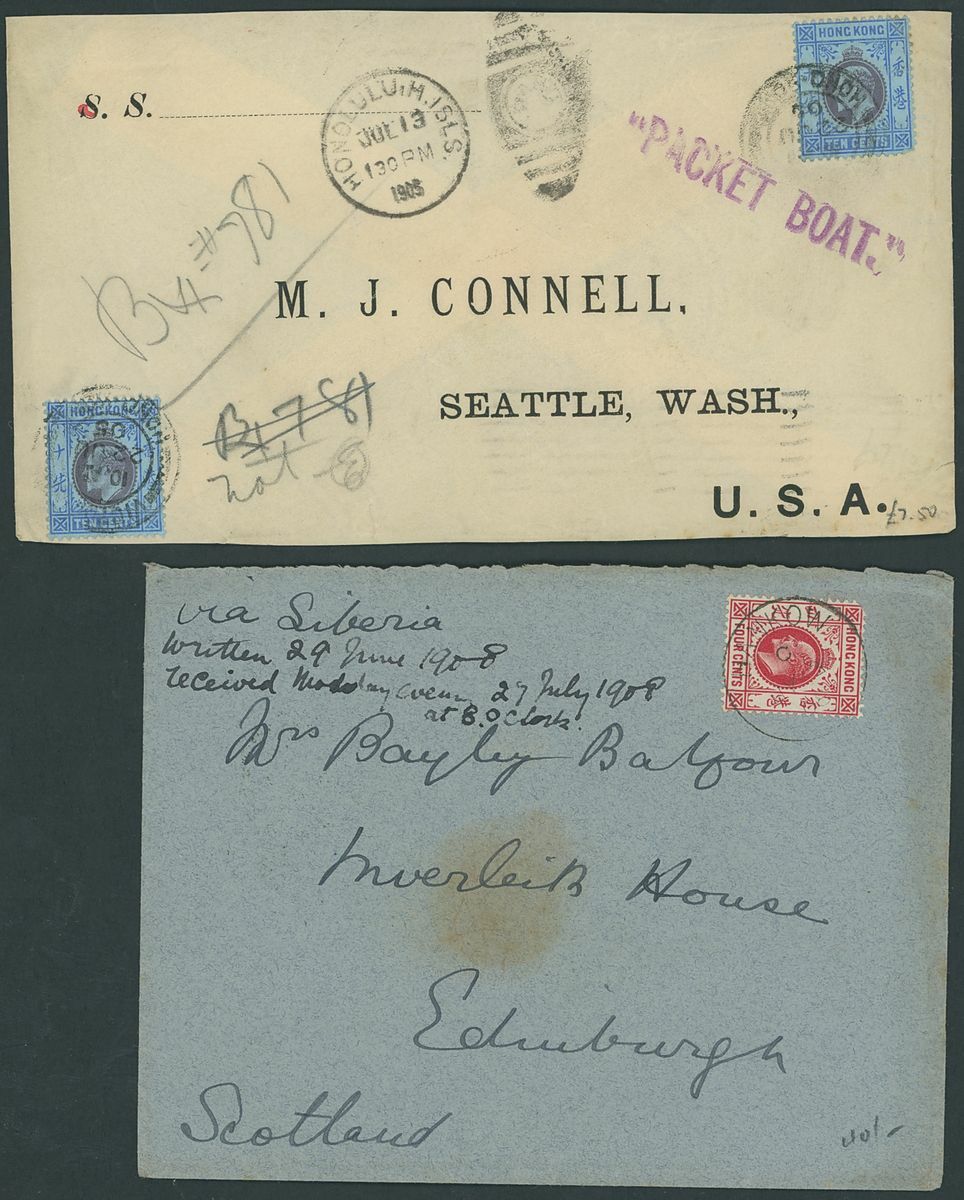 S. S.
HONOLULU, H. ISLS.
JUL 13
1 30 PM
1905
HONG KONG
香港
TEN CENTS
"PACKET BOAT."
B4 #781
M. J. CONNELL,
SEATTLE, WASH.,
U. S. A.
£7.50
HONG KONG
十先
TEN CENTS
B4 781
not
via Siberia
Written 29 June 1908
received Monday evening 27 July 1908
at 8. O'Clock.
HANKOW
HONG KONG
FOUR CENTS
香港
Mrs Bayley Balfour
Inverleith House
Edinburgh
Scotland
40/-